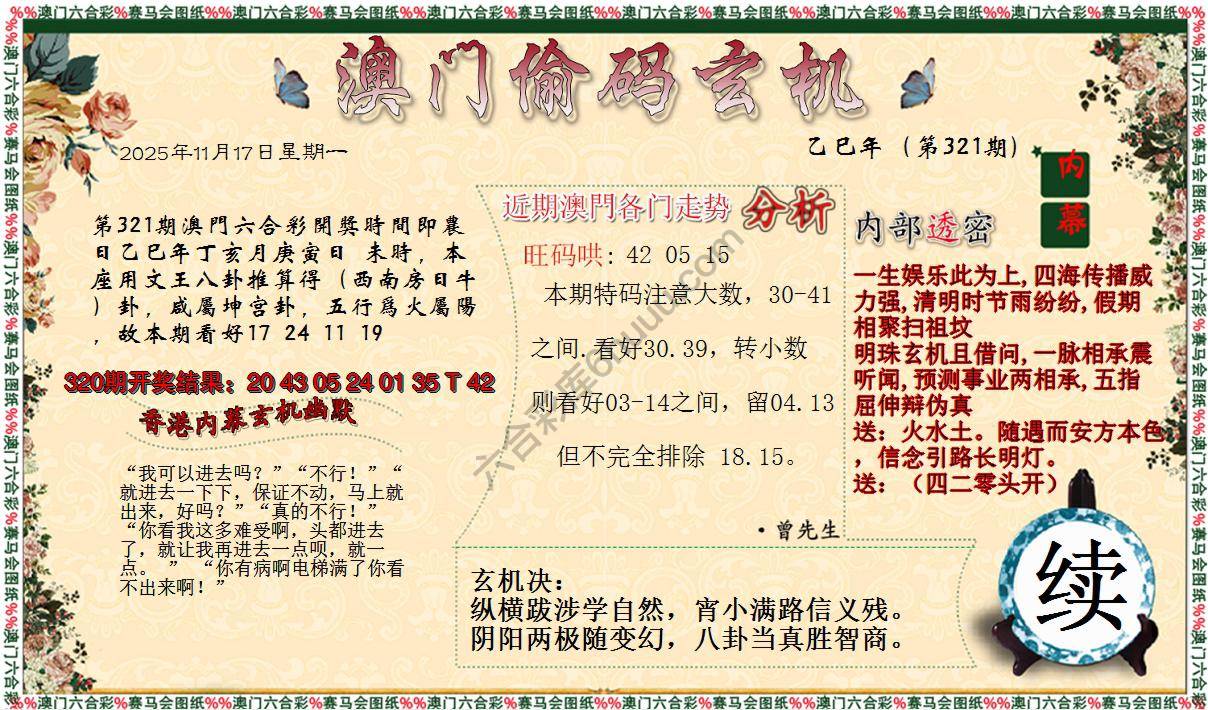 %%澳门六合彩%赛马会图纸%%澳门六合彩%赛马会图纸%%澳门六合彩%赛马会图纸%%澳门六合彩%赛马会图纸%%澳门六合彩%赛马会图纸%%澳门六合彩%赛马会图纸%%
澳门偷码玄机
2025年11月17日星期一
乙巳年（第321期）
内
幕
第321期澳門六合彩開獎時間即農
日乙巳年丁亥月庚寅日 未時，本
座用文王八卦推算得（西南房日牛
）卦，咸屬坤宫卦，五行爲火屬陽
，故本期看好17 24 11 19
320期开奖结果：20 43 05 24 01 35 T 42
香港内幕玄机幽默
“我可以进去吗？”“不行！”“
就进去一下下，保证不动，马上就
出来，好吗？”“真的不行！”
“你看我这多难受啊，头都进去
了，就让我再进去一点呗，就一
点。 ” “你有病啊电梯满了你看
不出来啊！”
近期澳門各门走势 分析
旺码哄: 42 05 15
本期特码注意大数，30-41
之间.看好30.39，转小数
则看好03-14之间，留04.13
但不完全排除 18.15。
·曾先生
内部透密
一生娱乐此为上,四海传播威
力强,清明时节雨纷纷,假期
相聚扫祖坟
明珠玄机且借问,一脉相承震
听闻,预测事业两相承,五指
屈伸辩伪真
送：火水土。随遇而安方本色
，信念引路长明灯。
送：（四二零头开）
玄机决：
纵横跋涉学自然，宵小满路信义残。
阴阳两极随变幻，八卦当真胜智商。
续
%%澳门六合彩%赛马会图纸%%澳门六合彩%赛马会图纸%%澳门六合彩%赛马会图纸%%澳门六合彩%赛马会图纸%%澳门六合彩%赛马会图纸%%澳门六合彩%赛马会图纸%%